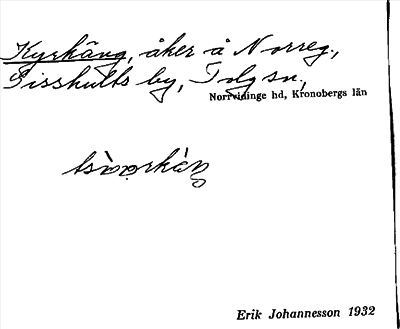 Kyrkäng, åker å Norreg.,
Sisshults by, Tolg sn,
Norrvidinge hd, Kronobergs län
Erik Johannesson 1932